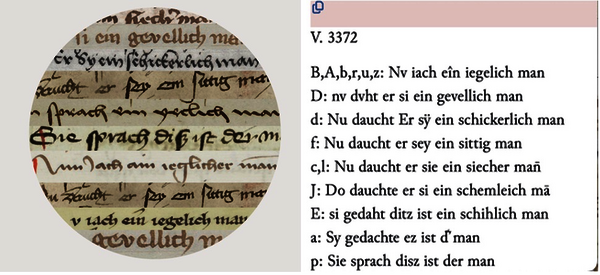 im kirch man
si ein gevellich ma
er Sy ein schickerlich man
daucht er sey ein sittig man
sprach ein yeclich man
Sie sprach disz ist der m
Nun Jach ain ieglicher man
daucht er sey ein sittig man
v iach ein iegelich man
gevellich m
V. 3372
B,A,b,r,u,z: Nv iach eîn iegelich man
D: nv dvht er si ein gevellich man
d: Nu daucht Er sÿ ein schickerlich man
f: Nu daucht er sey ein sittig man
c,l: Nu daucht er sie ein siecher man̄
J: Do dauchte er si ein schemleich mā
E: si gedaht ditz ist ein schihlich man
a: Sy gedachte ez ist d͛ man
p: Sie sprach disz ist der man